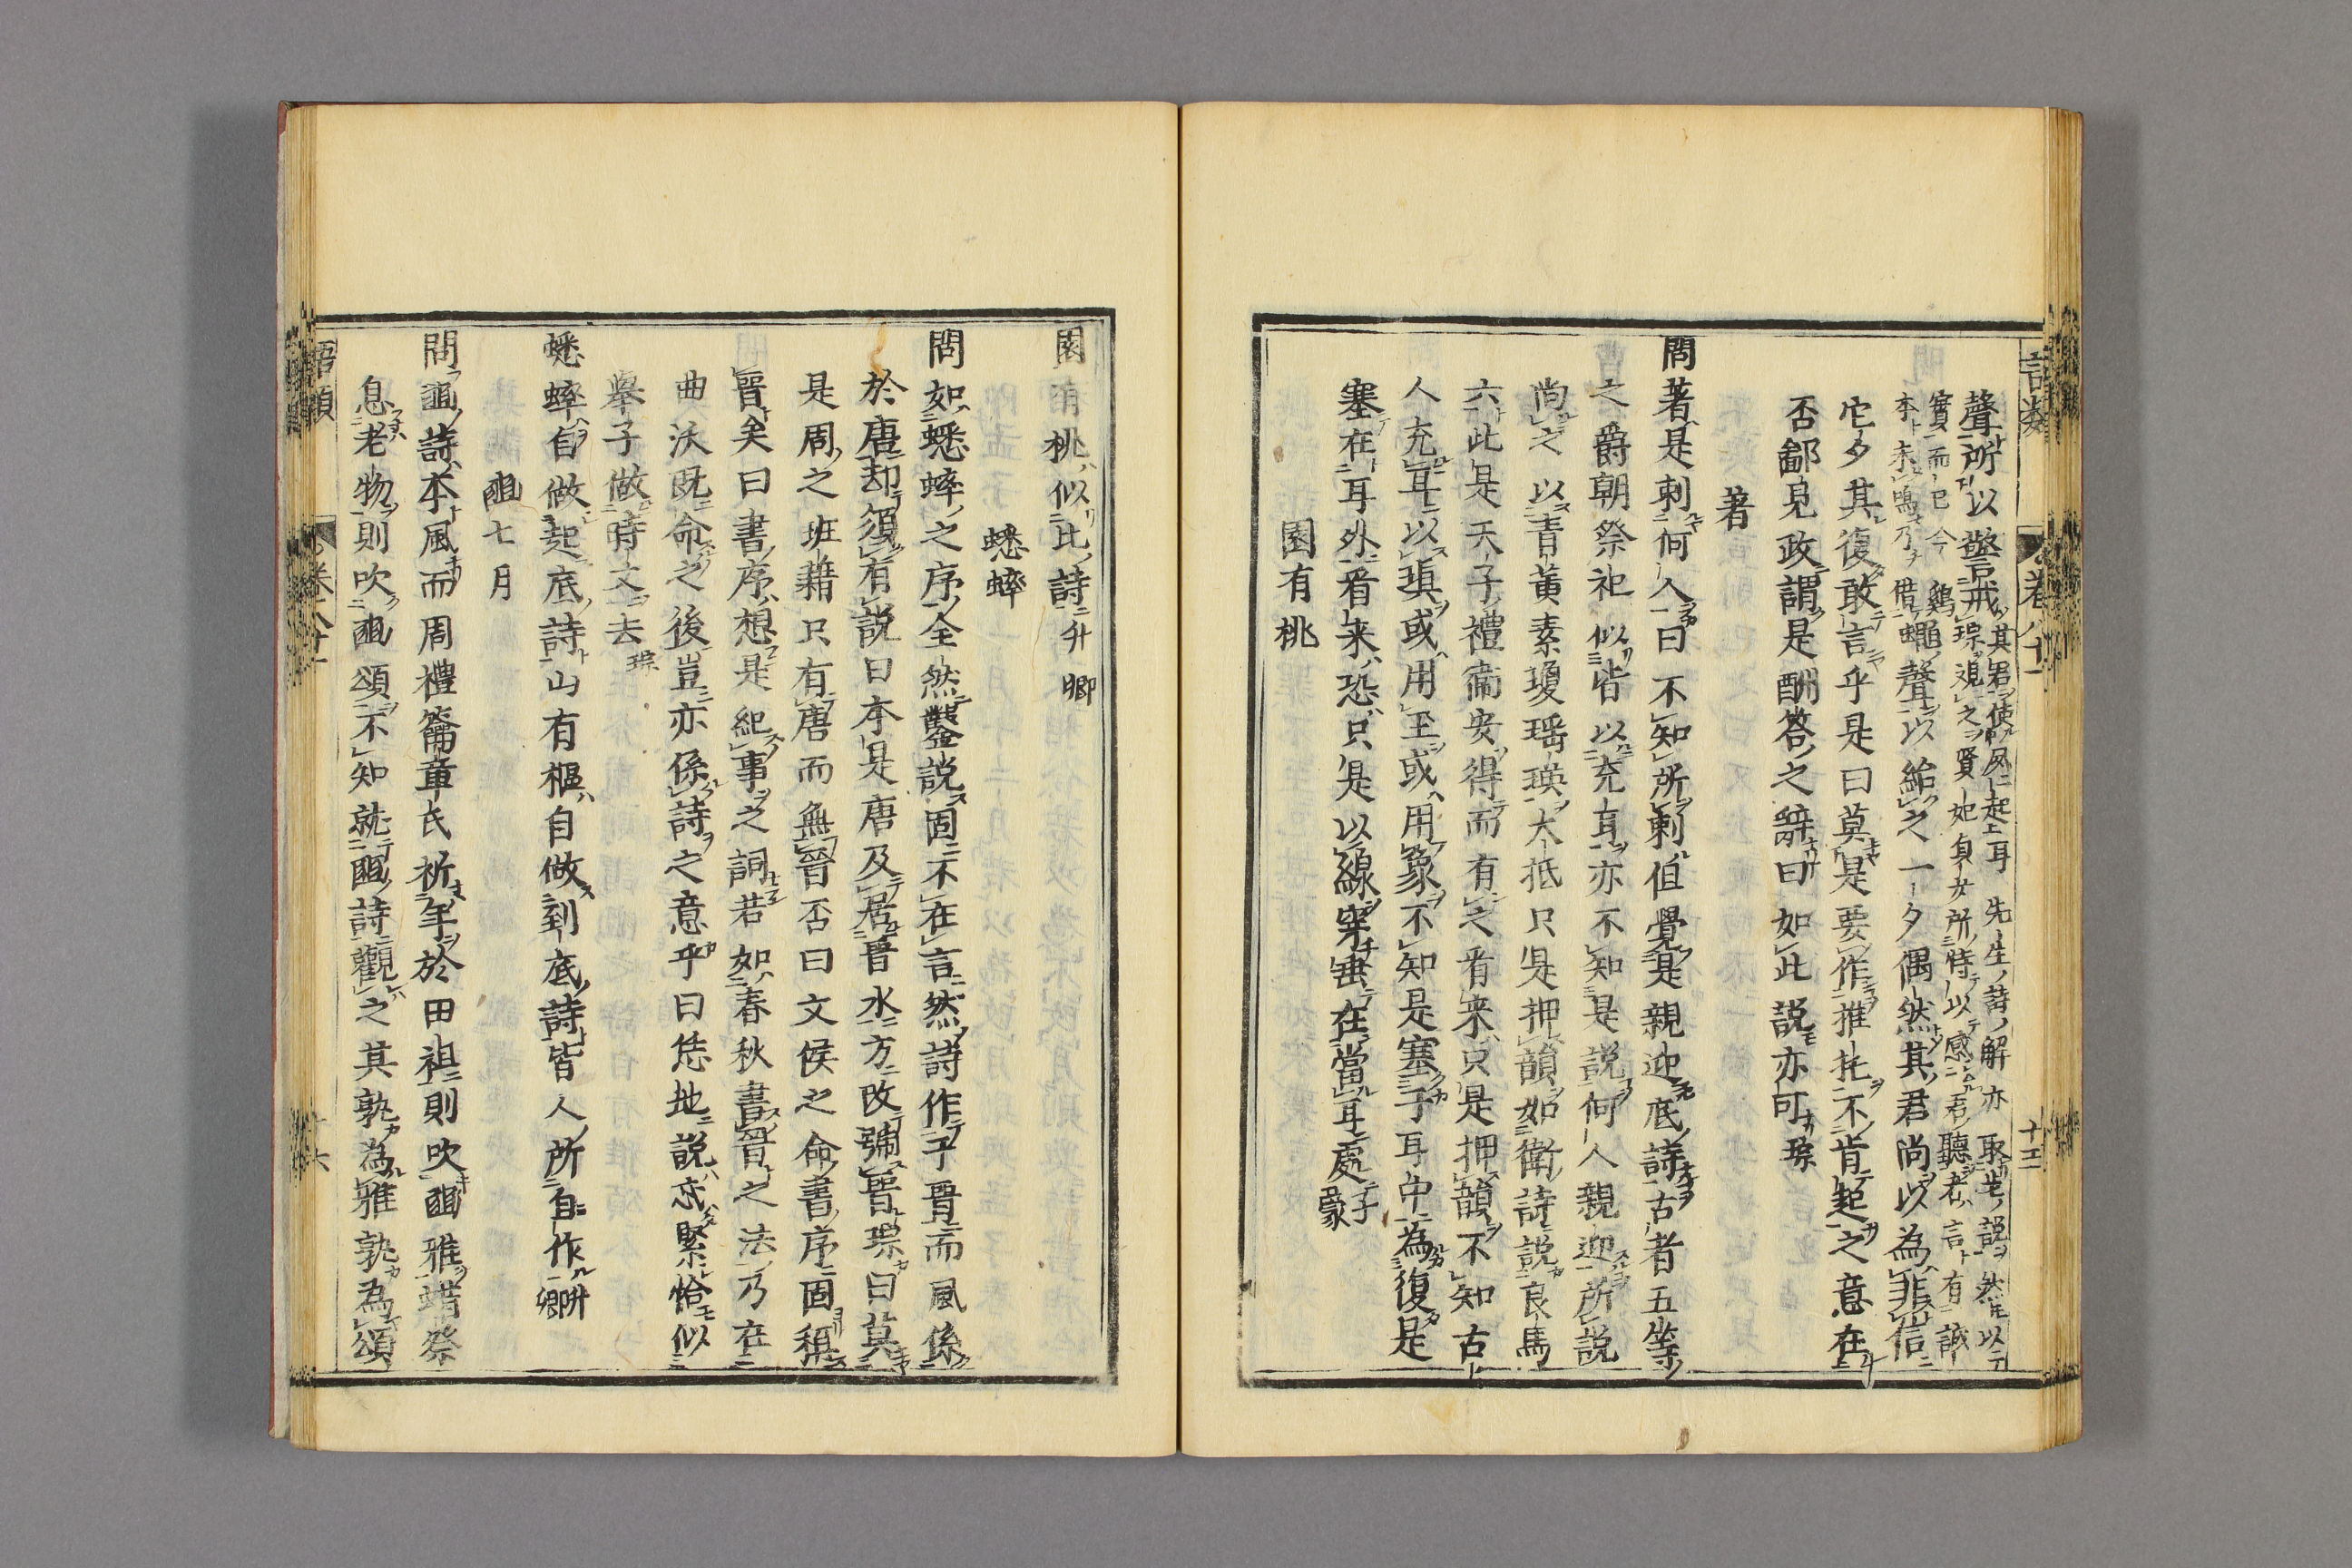 聲所以警戒其君使夙起耳先生詩解亦取此說然毛以
實而已今鷄琮覌之賢妃貞女所恃以感君聽者言有誠
本未鳴乃借蠅聲以紿之一夕偶然其君尚以為非信
它夕其復敢言乎是曰莫是要作推托不肯起之意在
否鄙見政謂是酬答之辭曰如此說亦可琮
著
問著是刺何人曰不知所刺但覺是親迎底詩古者五等
之爵朝祭祀似皆以充耳亦不知是說何人親迎所說
尚之以青黃素瓊瑶瑛大抵只是押韻如衛詩說良馬
六此是天子禮衛安得而有之看来只是押韻不知古
人充耳以瑱或用玉或用象不知是塞于耳中為復是
塞在耳外看来恐只是以線穿垂在當耳處子蒙
園有桃
園有桃似比詩升卿
蟋蟀
問如蟋蟀之序全然鑿說固不在言然詩作于晋而風係
於唐却須有說曰本是唐及居晋水方改彌晋琮曰莫
是周之班籍只有唐而無晋否曰文侯之命書序固稱
晋矣曰書序想是紀事之詞若如春秋書晋之法乃在
曲沃既命之後豈亦係詩之意乎曰恁地說忒緊恰似
舉子做時文去琮
蟋蟀自做起底詩山有樞自做到底詩皆人所自作升卿
豳七月
問豳詩本風而周禮籥章氏祈年於田祖則吹豳雅蜡祭
息老物則吹豳頌不知就豳詩觀之其孰為雅孰為頌